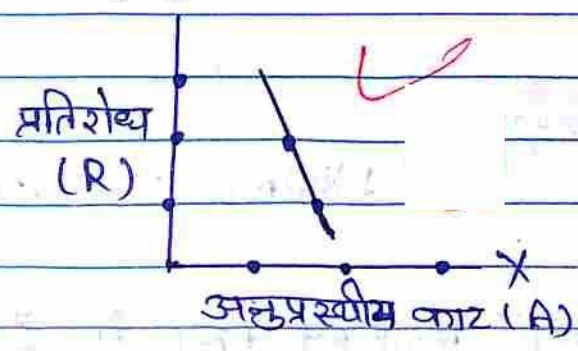 प्रतिरोध
(R)
X
अनुप्रस्थीय काट (A)